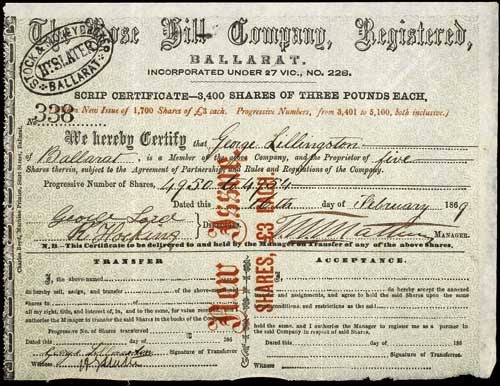 The Rose Hill Company, Registered,
STOCK & MONEY BROKER
H. SLATER
BALLARAT
BALLARAT.
INCORPORATED UNDER 27 VIC., NO. 228.
SCRIP CERTIFICATE—3,400 SHARES OF THREE POUNDS EACH,
New Issue of 1,700 Shares of £3 each. Progressive Numbers, from 3,401 to 5,100, both inclusive.)
No. 338
We hereby Certify that George Lillingston
of Ballarat is a Member of the above Company, and the Proprietor of five
Shares therein, subject to the Agreement of Partnership and Rules and Regulations of the Company.
Progressive Number of Shares, 4950 to 4954
Dated this day of February 1869
George
R. Hopkins
MANAGER.
N.B.—This Certificate to be delivered to and held by the Manager on Transfer of any of the above Shares.
New Issue.
SHARES, £3 EACH
TRANSFER
I, the above-named
do hereby sell, assign, and transfer of the above
shares to of
all my right, title, and interest of, in, and to the same, for value
authorise the Manager to transfer the said Shares in the books of the
Progressive No. of Shares transferred
Dated this day of 186
George Lillingston Signature of Transferror
Witness
ACCEPTANCE.
I, of
do hereby accept the annexed
and assignments, and agree to hold the said Shares upon the same
conditions, and restrictions as the said
held the same, and I authorise the Manager to register me as a partner in
the said Company in respect of said Shares.
Dated this day of 186
Signature of Transferree
Witness